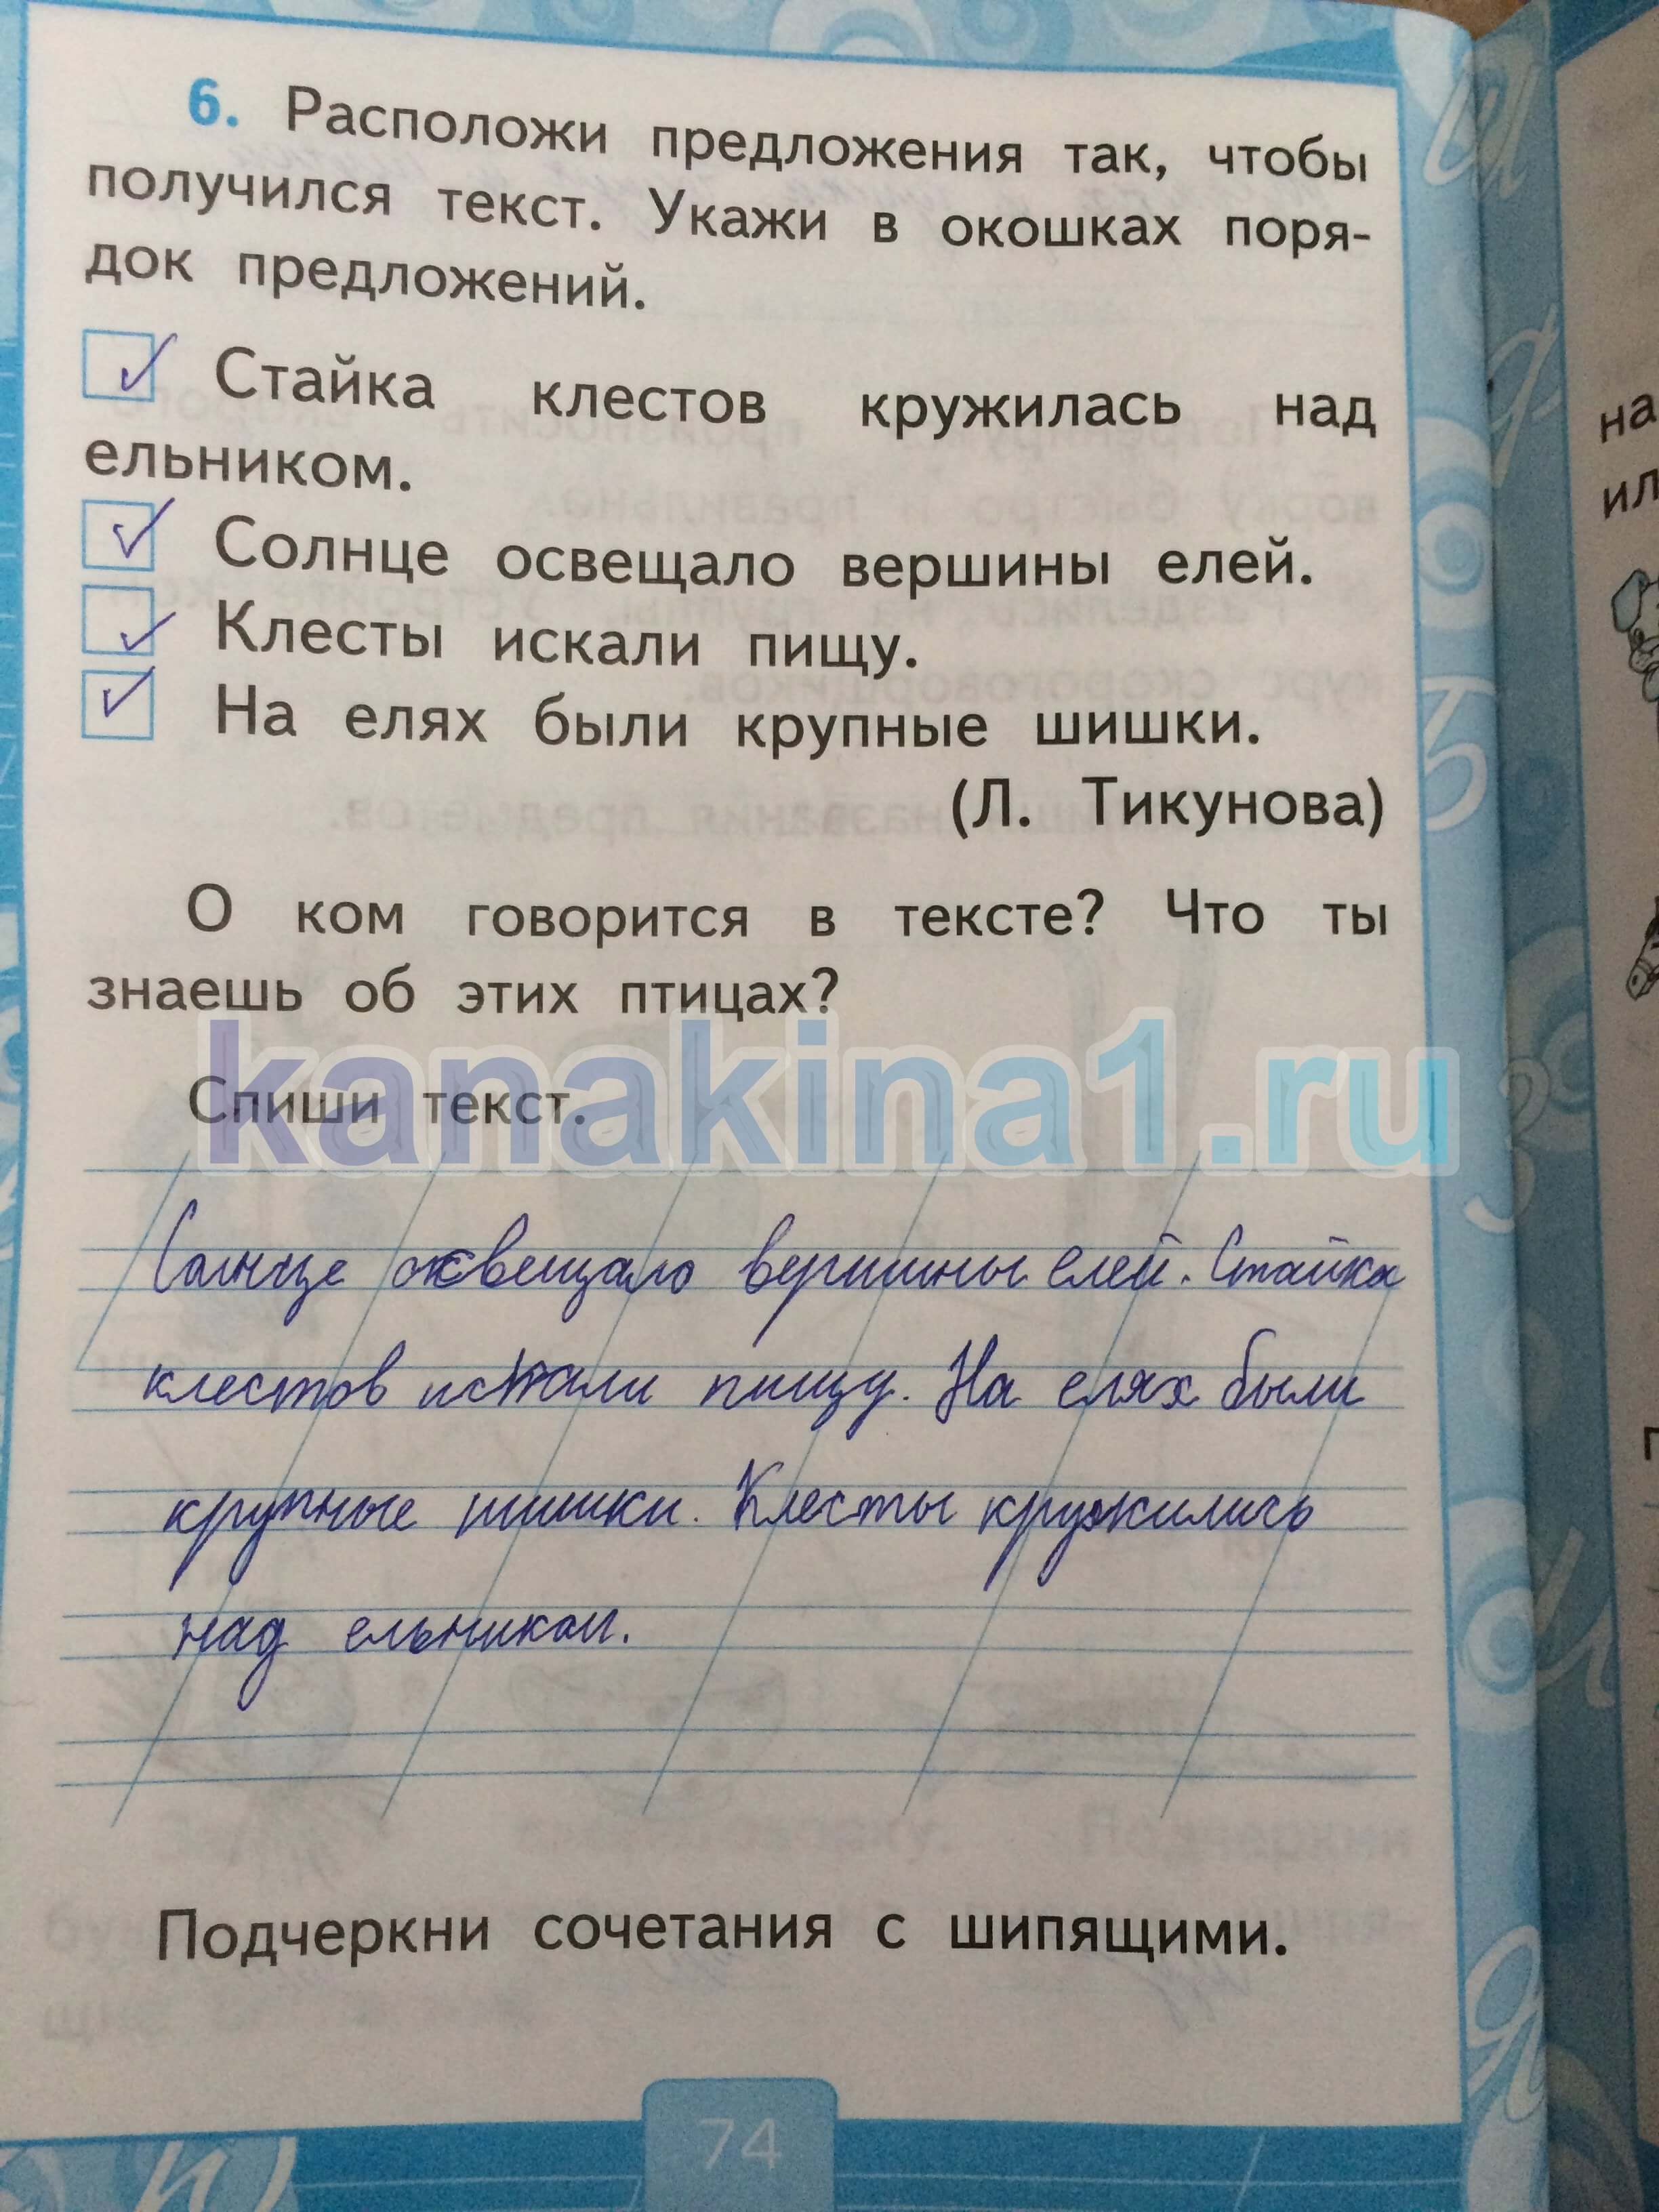 6. Расположи предложения так, чтобы
получился текст. Укажи в окошках поря-
док предложений.
Стайка клестов кружилась над
ельником.
Солнце освещало вершины елей.
Клесты искали пищу.
На елях были крупные шишки.
(Л. Тикунова)
О ком говорится в тексте? Что ты
знаешь об этих птицах?
kanakina1.ru
Спиши текст.
Солнце освещало вершины елей. Стайка
клестов искали пищу. На елях были
крупные шишки. Клесты кружились
над ельником.
Подчеркни сочетания с шипящими.
74
на
ил